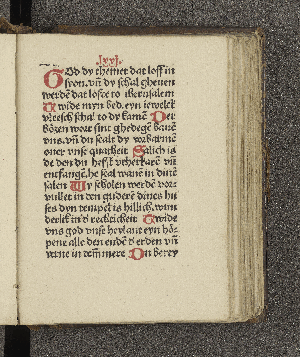 lxxj.
God dy themet dat loff in
syon. vñ dy schal gheuen
werdẽ dat lofte to iherusalem
Twide myn bed. eyn iewelck
vleesch schal to dy kamẽ Der
bözen wort sint ghedegẽ bauẽ
vns. vñ du scalt dy vorbarmẽ
ouer vnse quatheit Salich is
de den du heffst vtherkarẽ vñ
entfangẽ. he scal wanẽ in dinẽ
salen Wy scholen werdẽ vor-
vullet in den guderẽ dines hu
ses dyn tempel is hillich. wun
derlik in d rechticheit Twide
vns god vnse heylant eyn hör-
pene alle den endẽ d erden vñ
wane in deme mere Du berey